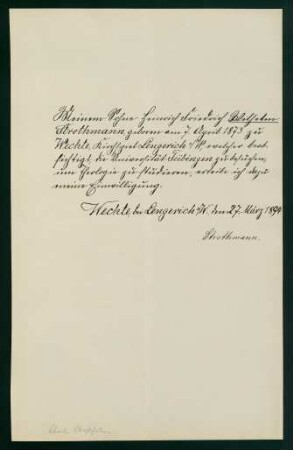 Meinem Sohne Heinrich Friedrich Wilhelm
Strothmann geboren am 7. April 1873 zu
Wechte, Kirchspiel Lengerich i/W welcher beab-
sichtigt, die Universität Tübingen zu besuchen,
um Theologie zu studieren, erteile ich dazu
meine Einwilligung.
Wechte bei Lengerich i/W. den 27. März 1894
Strothmann.